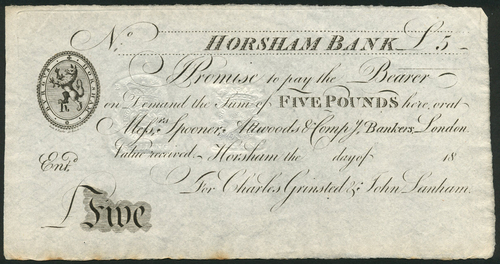 No. HORSHAM BANK £5
I Promise to pay the Bearer
on Demand the Sum of FIVE POUNDS here, or at
Messrs. Spooner, Attwoods & Compy. Bankers, London.
Value received Horsham the day of 18
Entd.
For Charles Grinsted & John Lanham.
£ Five
HORSHAM